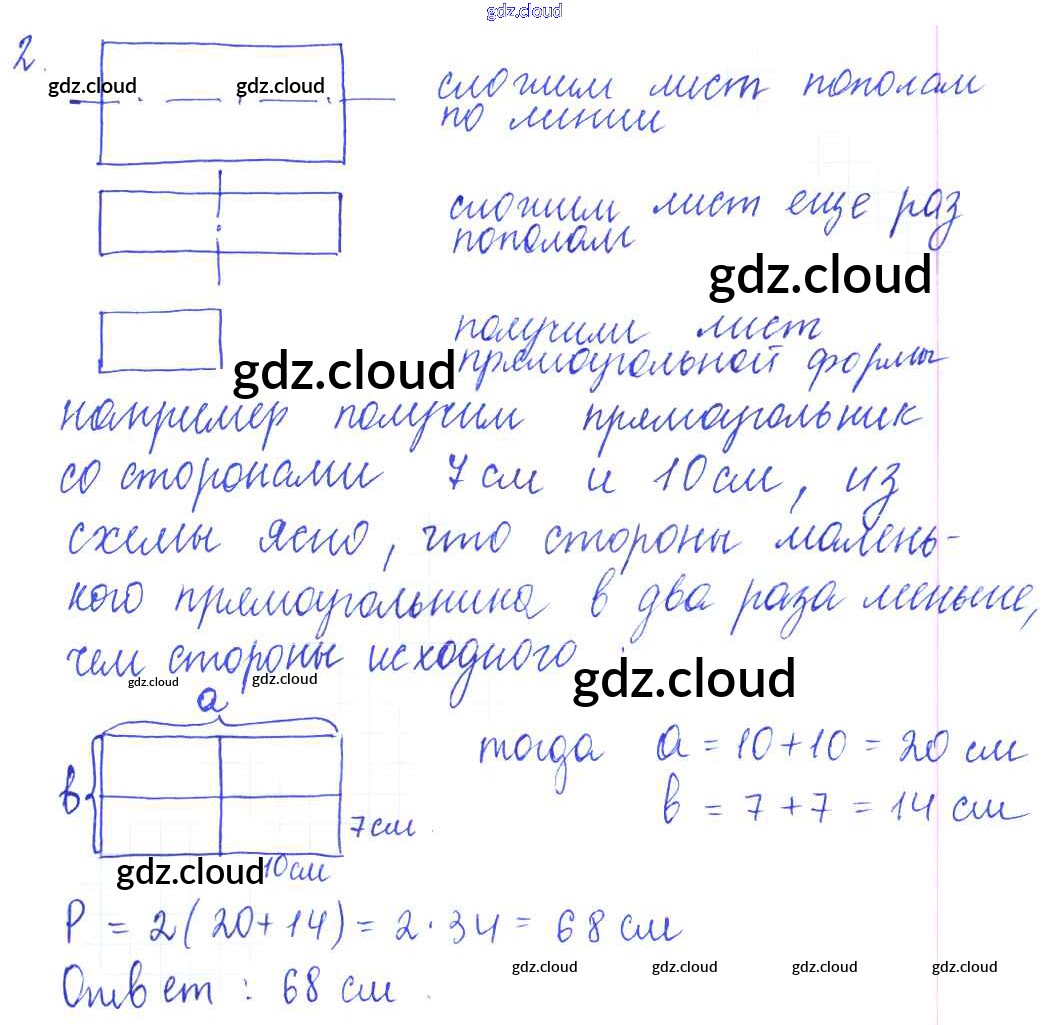 gdz.cloud
2.
gdz.cloud gdz.cloud
сложим лист пополам
по линии
сложим лист еще раз
пополам
gdz.cloud
получили лист
прямоугольной формы
gdz.cloud
например получим прямоугольник
со сторонами 7 см и 10 см, из
схемы ясно, что стороны малень-
кого прямоугольника в два раза меньше,
чем стороны исходного.
gdz.cloud gdz.cloud gdz.cloud
a
тогда a = 10 + 10 = 20 см
в
в = 7 + 7 = 14 см
7 см
gdz.cloud 10 см
P = 2(20 + 14) = 2 · 34 = 68 см
gdz.cloud gdz.cloud gdz.cloud gdz.cloud
Ответ : 68 см.